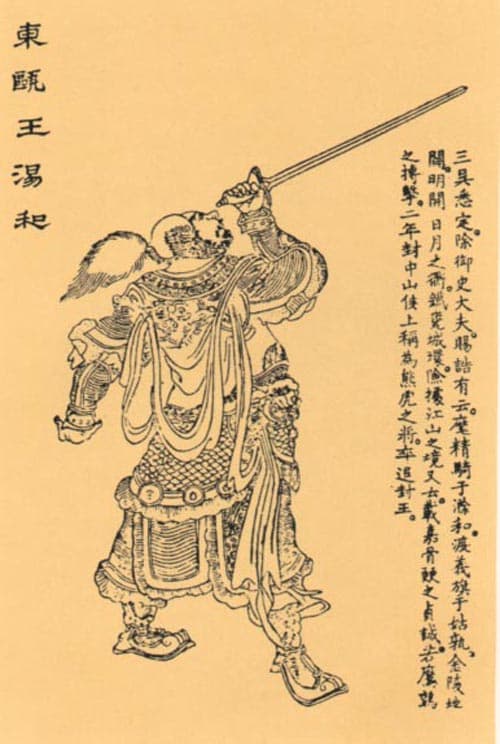 東甌王湯和
三吳悉定。除御史大夫。賜誥有云。麾精騎于滁和。渡義旗于姑孰。金陵地
闢。明開日月之衢。鐵瓮城。險據江山之境。又云。載嘉骨鯁之貞誠。若鷹鸇
之搏擊。二年封中山侯。上稱為熊虎之將。卒追封王。